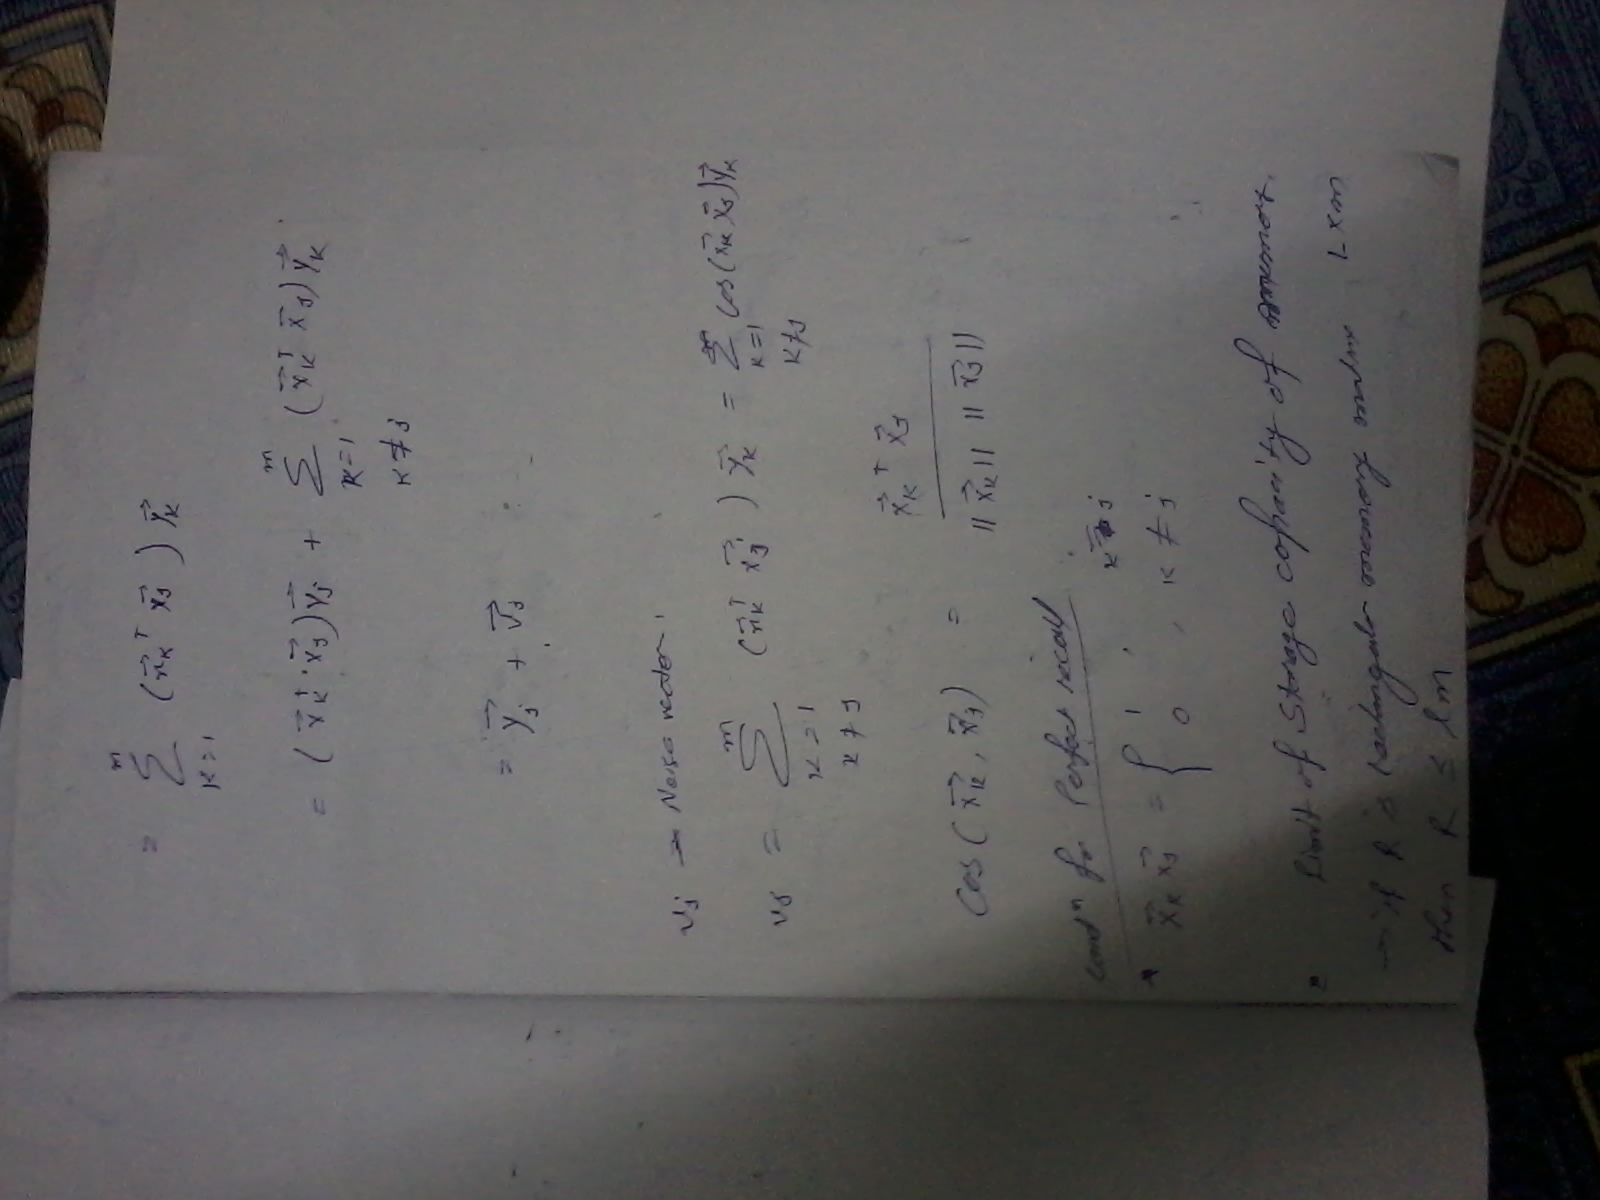 = m Σ k=1 (x⃗k^T x⃗j) y⃗k
= (x⃗k^T . x⃗j) y⃗j + m Σ k=1 k≠j (x⃗k^T x⃗j) y⃗k
= y⃗j + v⃗j
vj → Noise vector
vj = m Σ k=1 k≠j (x⃗k^T x⃗j) y⃗k = m Σ k=1 k≠j Cos(x⃗k x⃗j) y⃗k
Cos(x⃗k, x⃗j) = x⃗k^T x⃗j / ||x⃗k|| ||x⃗j||
Condn for Perfect recall
* x⃗k x⃗j = { 1 , k=j
0 , k≠j
Limit of Storage capacity of
→ if R is rectangular memory matrix L×m
then R ≤